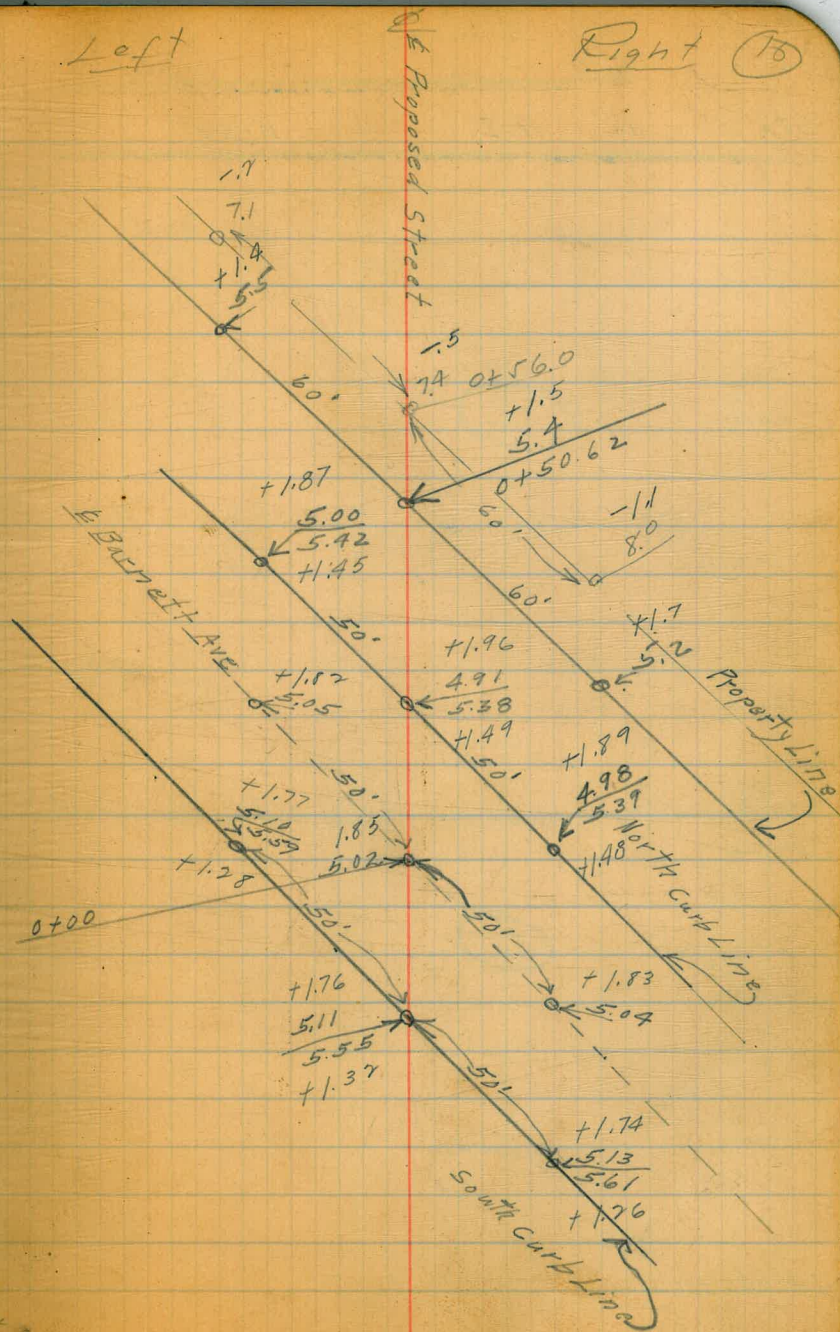 Left
℄ Proposed Street
Right
16
-.2
7.1
+1.4
5.5
60'
-.5
7.4
0+56.0
+1.5
5.4
0+50.62
60'
-1.1
8.0
60'
+1.7
5.2
Property Line
+1.87
5.00
5.42
+1.45
50'
℄ Barnett Ave
+1.96
4.91
5.38
+1.49
50'
+1.89
4.98
5.39
+1.48
North Curb Line
+1.82
5.05
50'
1.85
5.02
0+00
50'
+1.83
5.04
+1.77
5.10
5.59
+1.28
50'
+1.76
5.11
5.55
+1.32
50'
+1.74
5.13
5.61
+1.26
South Curb Line